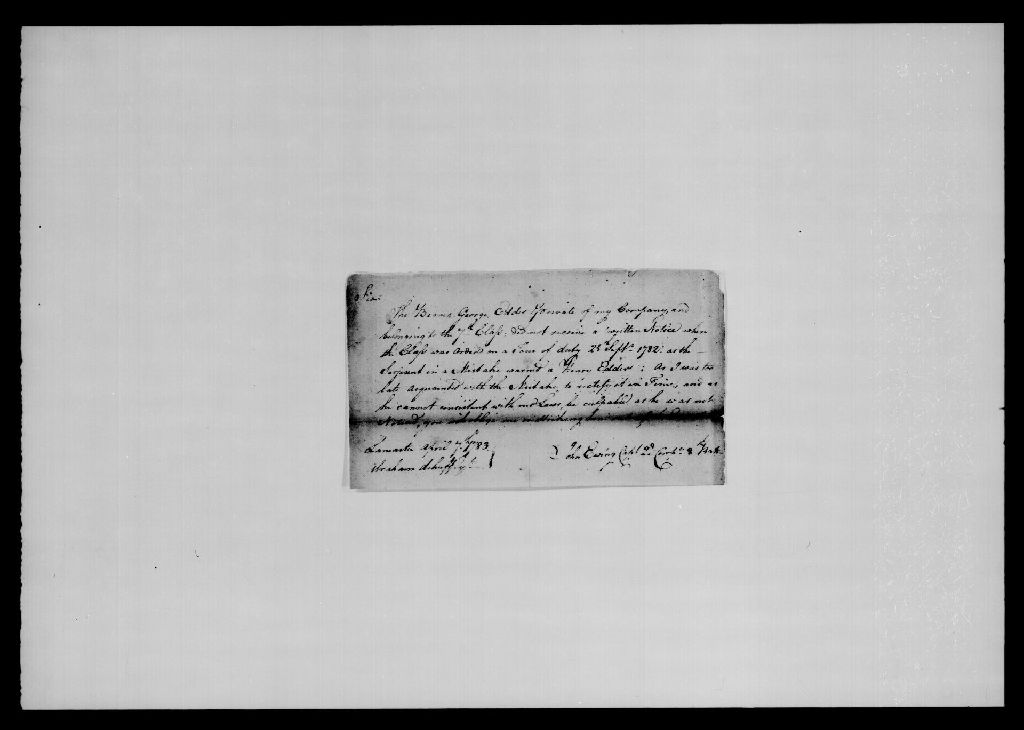 Sir
The Bearer George Eddes Private of my Company, and
belonging to the 7th Class, did not receive a written Notice when
the Class was ordered on a Tour of duty 28th Septr 1782: as the
Serjeant in a Mistake warned a Henry Eddes: As I was too
late acquainted with the Mistake, to rectify it in Time, and as
he cannot consistent with our Laws, be culpable as he was not
Noticed, you
Lancaster April 1783
Abraham
John Ewing Capt 2d Comp. 8 Batt